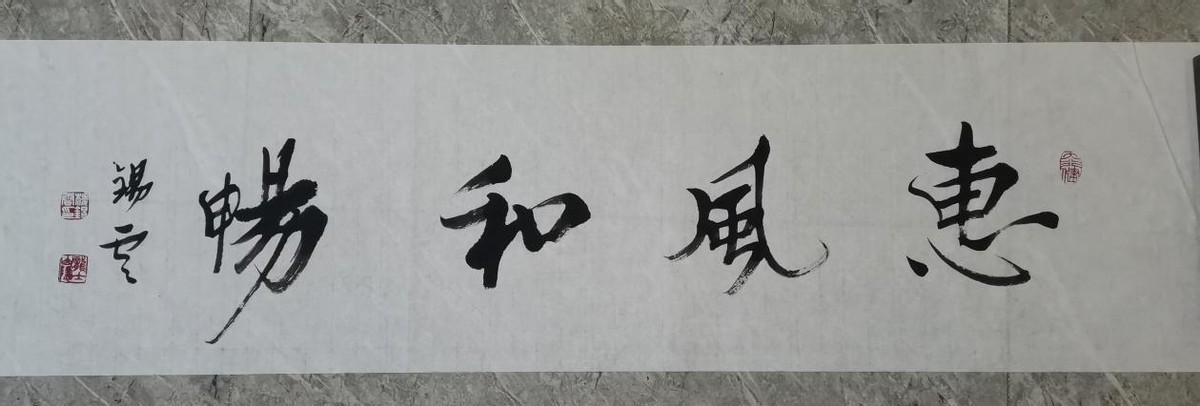 惠風和暢
錫雲